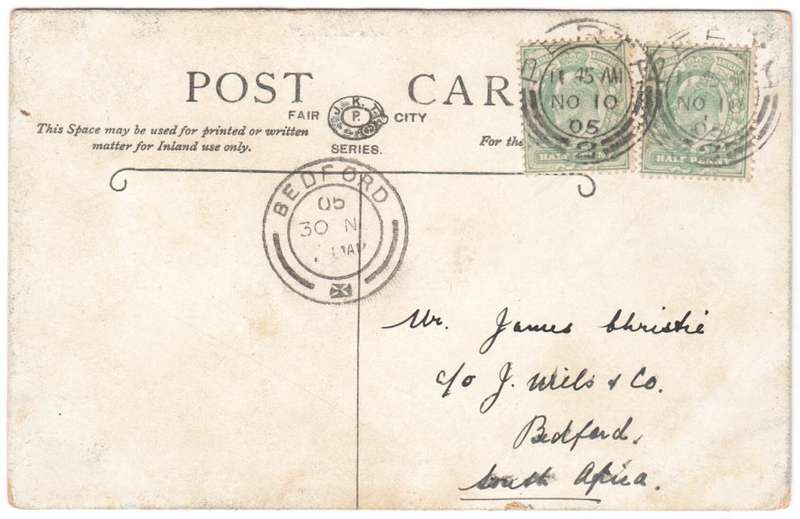 POST CAR
FAIR J. K. CITY
P.
SERIES.
This Space may be used for printed or written
matter for Inland use only.
For the
11 45 AM
NO 10
05
2
HALF PENNY
NO 10
05
2
HALF PENNY
BEDFORD
05
30 N
AM
Mr. James Christie
c/o J. Wils & Co.
Bedford,
South Africa.